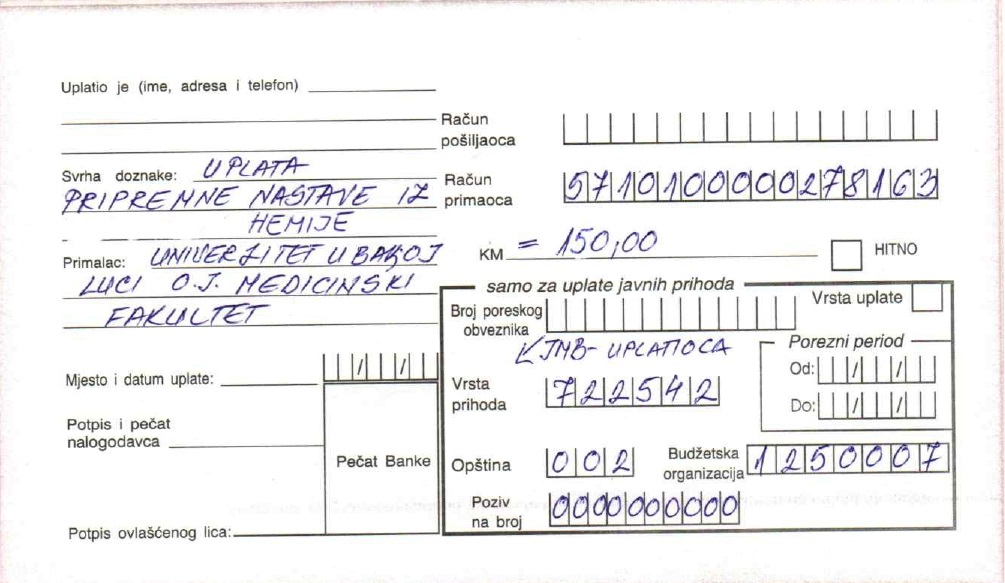 Uplatio je (ime, adresa i telefon)
Račun pošiljaoca
Svrha doznake: UPLATA
PRIPREMNE NASTAVE IZ
HEMIJE
Račun primaoca 5710100000278163
Primalac: UNIVERZITET U BANJOJ
LUCI O.J. MEDICINSKI
FAKULTET
KM = 150,00
HITNO
samo za uplate javnih prihoda
Broj poreskog obveznika
Vrsta uplate
JMB-UPLATIOCA
Porezni period
Od: / /
Do: / /
Mjesto i datum uplate: / /
Vrsta prihoda 722542
Potpis i pečat nalogodavca
Pečat Banke
Opština 002
Budžetska organizacija 1250007
Poziv na broj 0000000000
Potpis ovlašćenog lica: